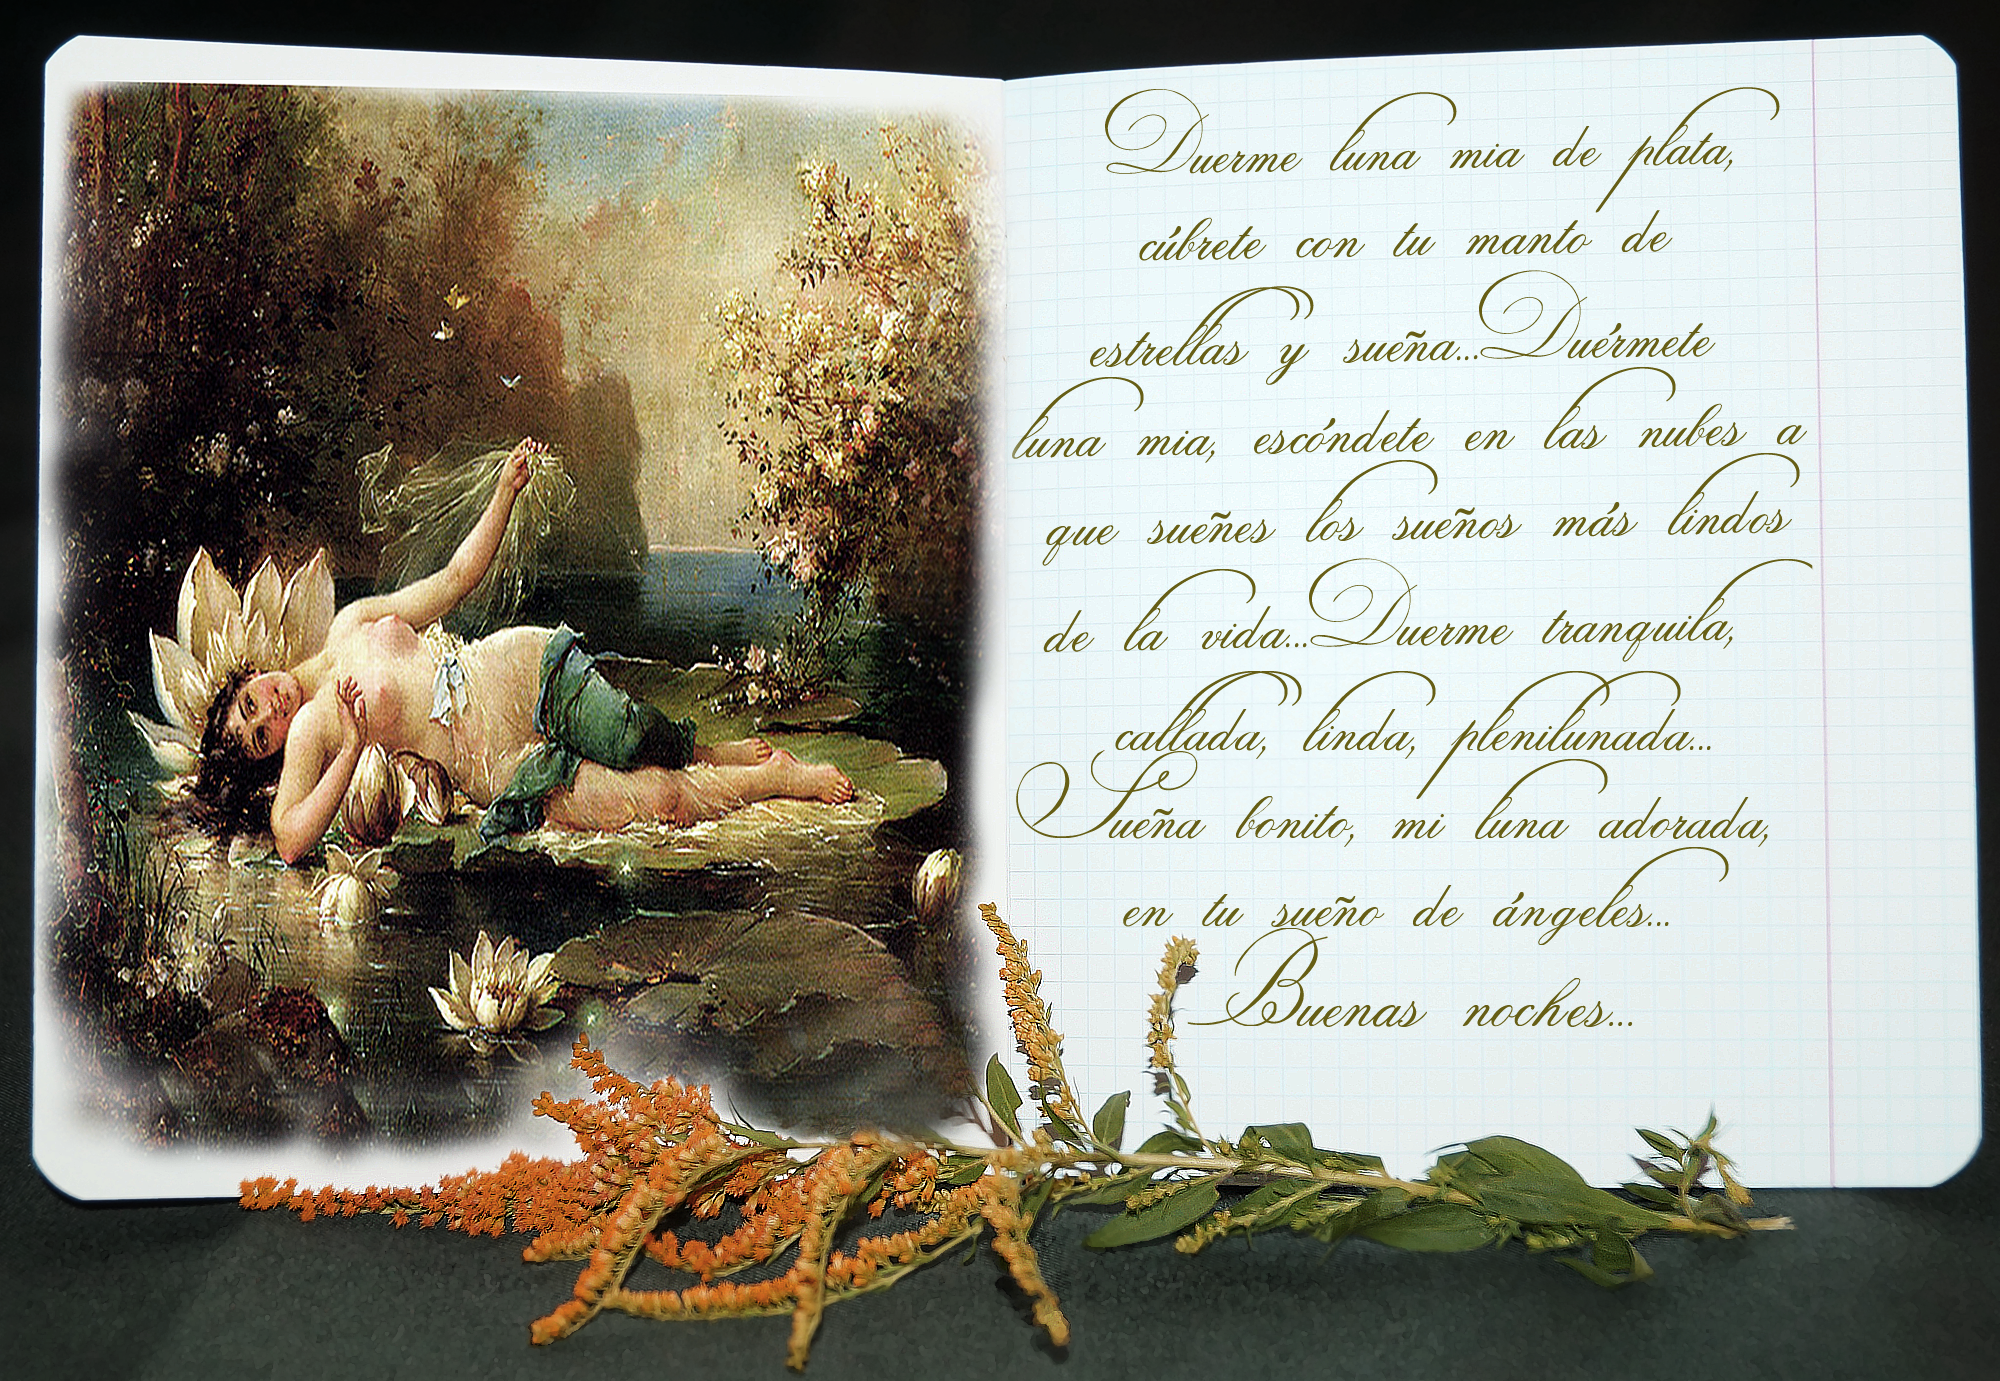 Duerme luna mia de plata,
cúbrete con tu manto de
estrellas y sueña...Duérmete
luna mia, escóndete en las nubes a
que sueñes los sueños más lindos
de la vida...Duerme tranquila,
callada, linda, plenilunada...
Sueña bonito, mi luna adorada,
en tu sueño de ángeles...
Buenas noches...